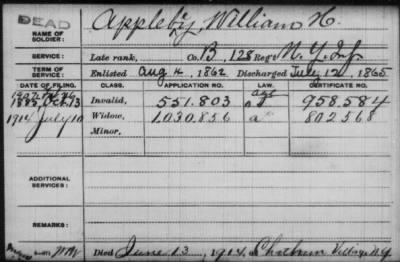 DEAD
NAME OF SOLDIER: Appleby, William H.
SERVICE: Late rank, Co. B, 128 Reg't N.Y. Inf.
TERM OF SERVICE: Enlisted Aug 4, 1862 Discharged July 12, 1865
DATE OF FILING. CLASS. APPLICATION NO. LAW. CERTIFICATE NO.
1907
1883, Oct. 13 Invalid, 551.803 958.584
1914 July 10 Widow, 1,030,856 a 802568
Minor,
ADDITIONAL SERVICES:
REMARKS:
Died June 13, 1914, at Chatham Village N.Y.